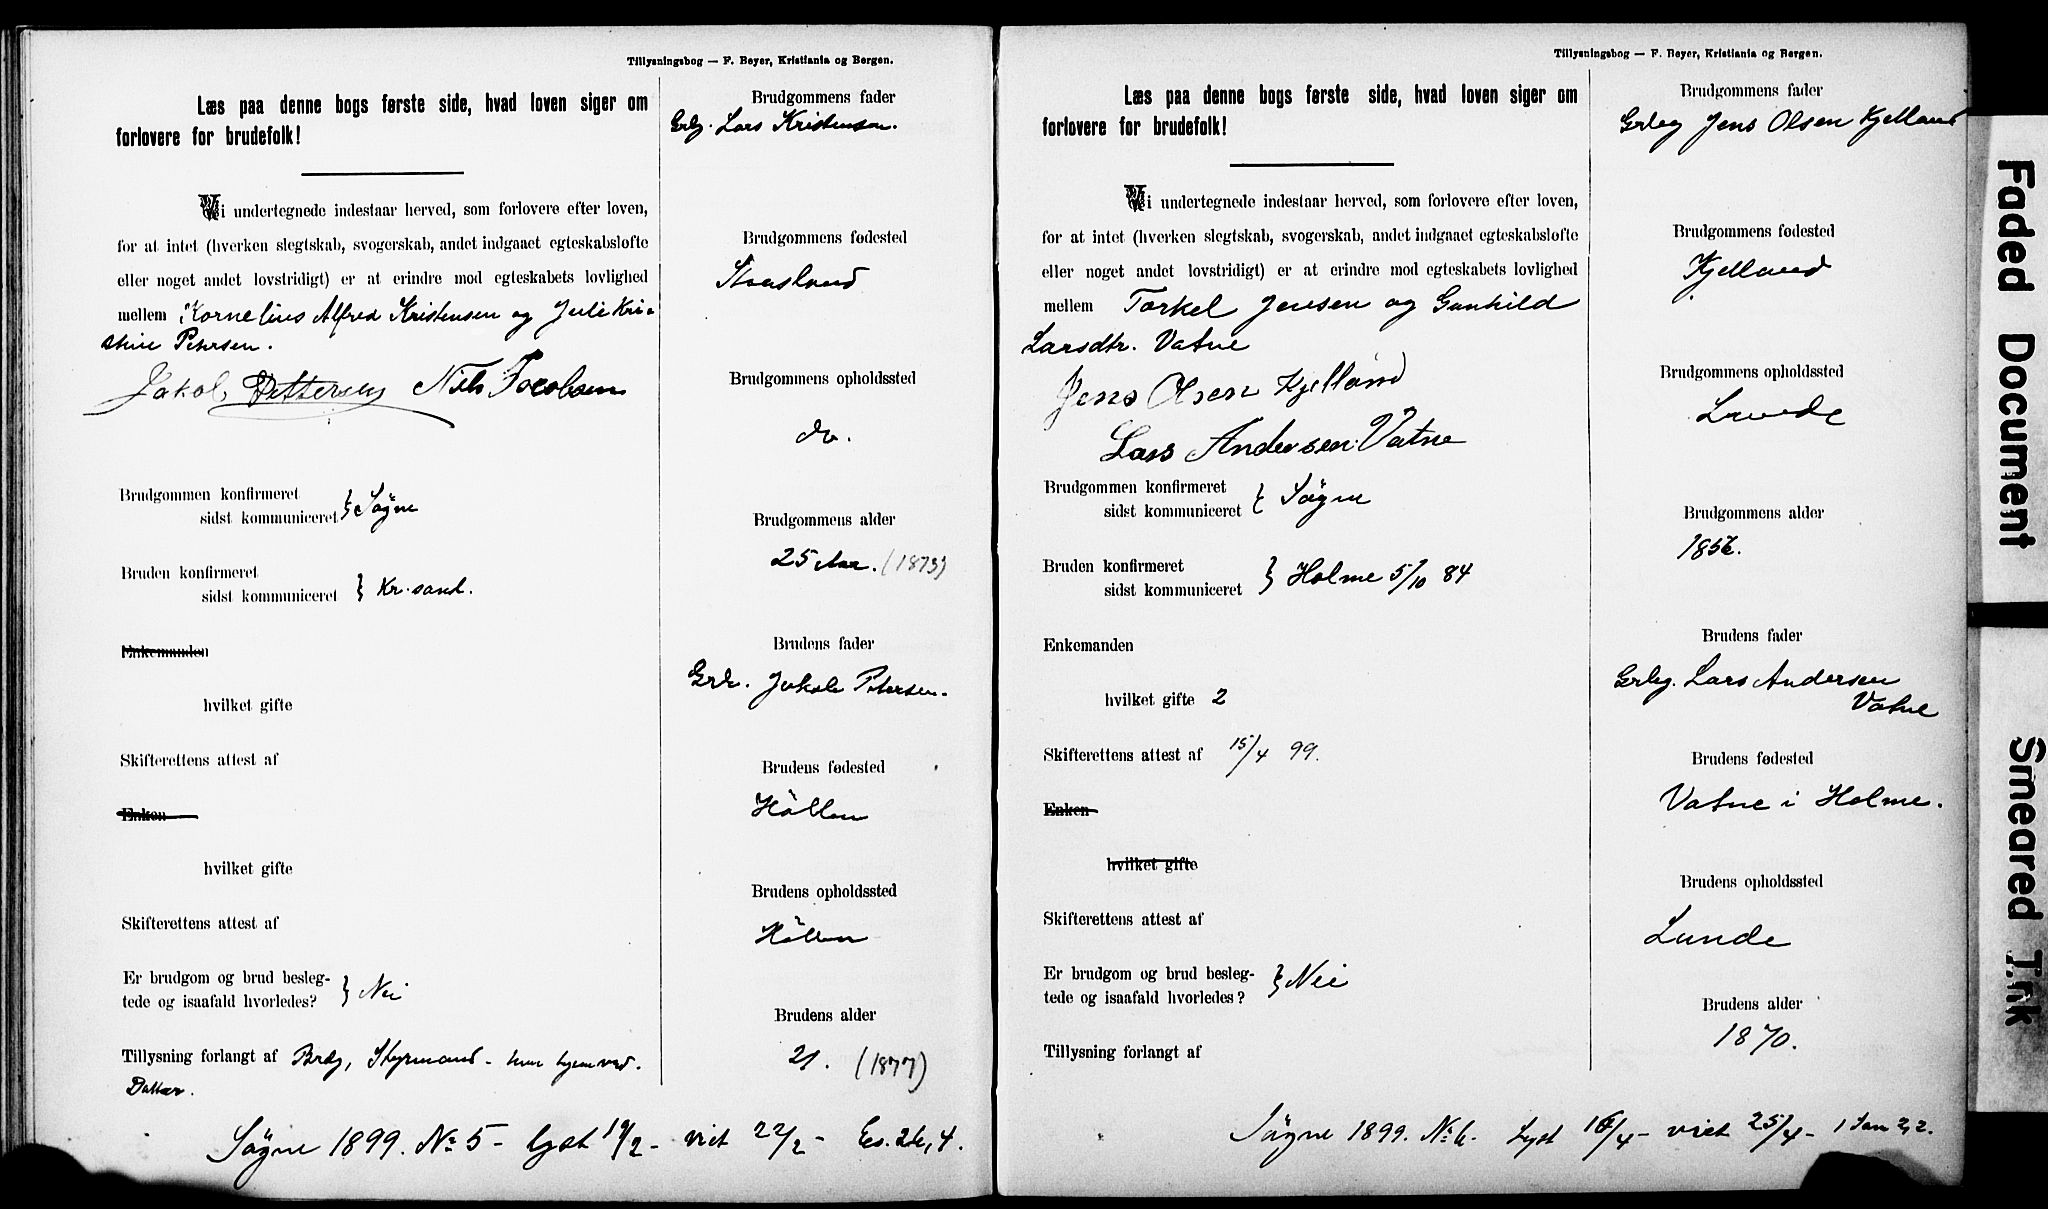 Tillysningsbog — F. Beyer, Kristiania og Bergen.
Læs paa denne bogs første side, hvad loven siger om
forlovere for brudefolk!
Vi undertegnede indestaar herved, som forlovere efter loven,
for at intet (hverken slegtskab, svogerskab, andet indgaaet egteskabsløfte
eller noget andet lovstridigt) er at erindre mod egteskabets lovlighed
mellem Kornelius Alfred Kristensen og Juli Kri-
stine Petersen.
Jakob Pettersen Nils Jacobsen
Brudgommen konfirmeret
sidst kommuniceret } Søgne
Bruden konfirmeret
sidst kommuniceret } Kr.sand.
Enkemanden
hvilket gifte
Skifterettens attest af
Enken
hvilket gifte
Skifterettens attest af
Er brudgom og brud besleg-
tede og isaafald hvorledes? } Nei
Tillysning forlangt af Brdg, Styrmand - hun hjemved.
Datter.
Brudgommens fader
Grbg. Lars Kristensen.
Brudgommens fødested
Brudgommens opholdssted
do.
Brudgommens alder
25 Aar. (1873)
Brudens fader
Grbr. Jakob Petersen.
Brudens fødested
Höllen
Brudens opholdssted
Höllen
Brudens alder
21. (1877)
Søgne 1899. No 5 - lyst 19/2 - viet 22/2 - Es. 26, 4.
Tillysningsbog — F. Beyer, Kristiania og Bergen.
Læs paa denne bogs første side, hvad loven siger om
forlovere for brudefolk!
Vi undertegnede indestaar herved, som forlovere efter loven,
for at intet (hverken slegtskab, svogerskab, andet indgaaet egteskabsløfte
eller noget andet lovstridigt) er at erindre mod egteskabets lovlighed
mellem Torkel Jensen og Gunhild
Larsdtr. Vatne
Jens Olsen Kjelland
Lars Andersen Vatne
Brudgommen konfirmeret
sidst kommuniceret } Søgne
Bruden konfirmeret
sidst kommuniceret } Holme 5/10 84
Enkemanden
hvilket gifte 2
Skifterettens attest af 15/4 99.
Enken
hvilket gifte
Skifterettens attest af
Er brudgom og brud besleg-
tede og isaafald hvorledes? } Nei
Tillysning forlangt af
Brudgommens fader
Grbg Jens Olsen Kjelland
Brudgommens fødested
Kjelland
Brudgommens opholdssted
Lunde
Brudgommens alder
1856.
Brudens fader
Grbg. Lars Andersen
Vatne
Brudens fødested
Vatne i Holme.
Brudens opholdssted
Lunde
Brudens alder
1870.
Søgne 1899. No 6. Lyst 16/4 - viet 25/4 - 1 Sam 2, 2.
Faded Document
Smeared Ink